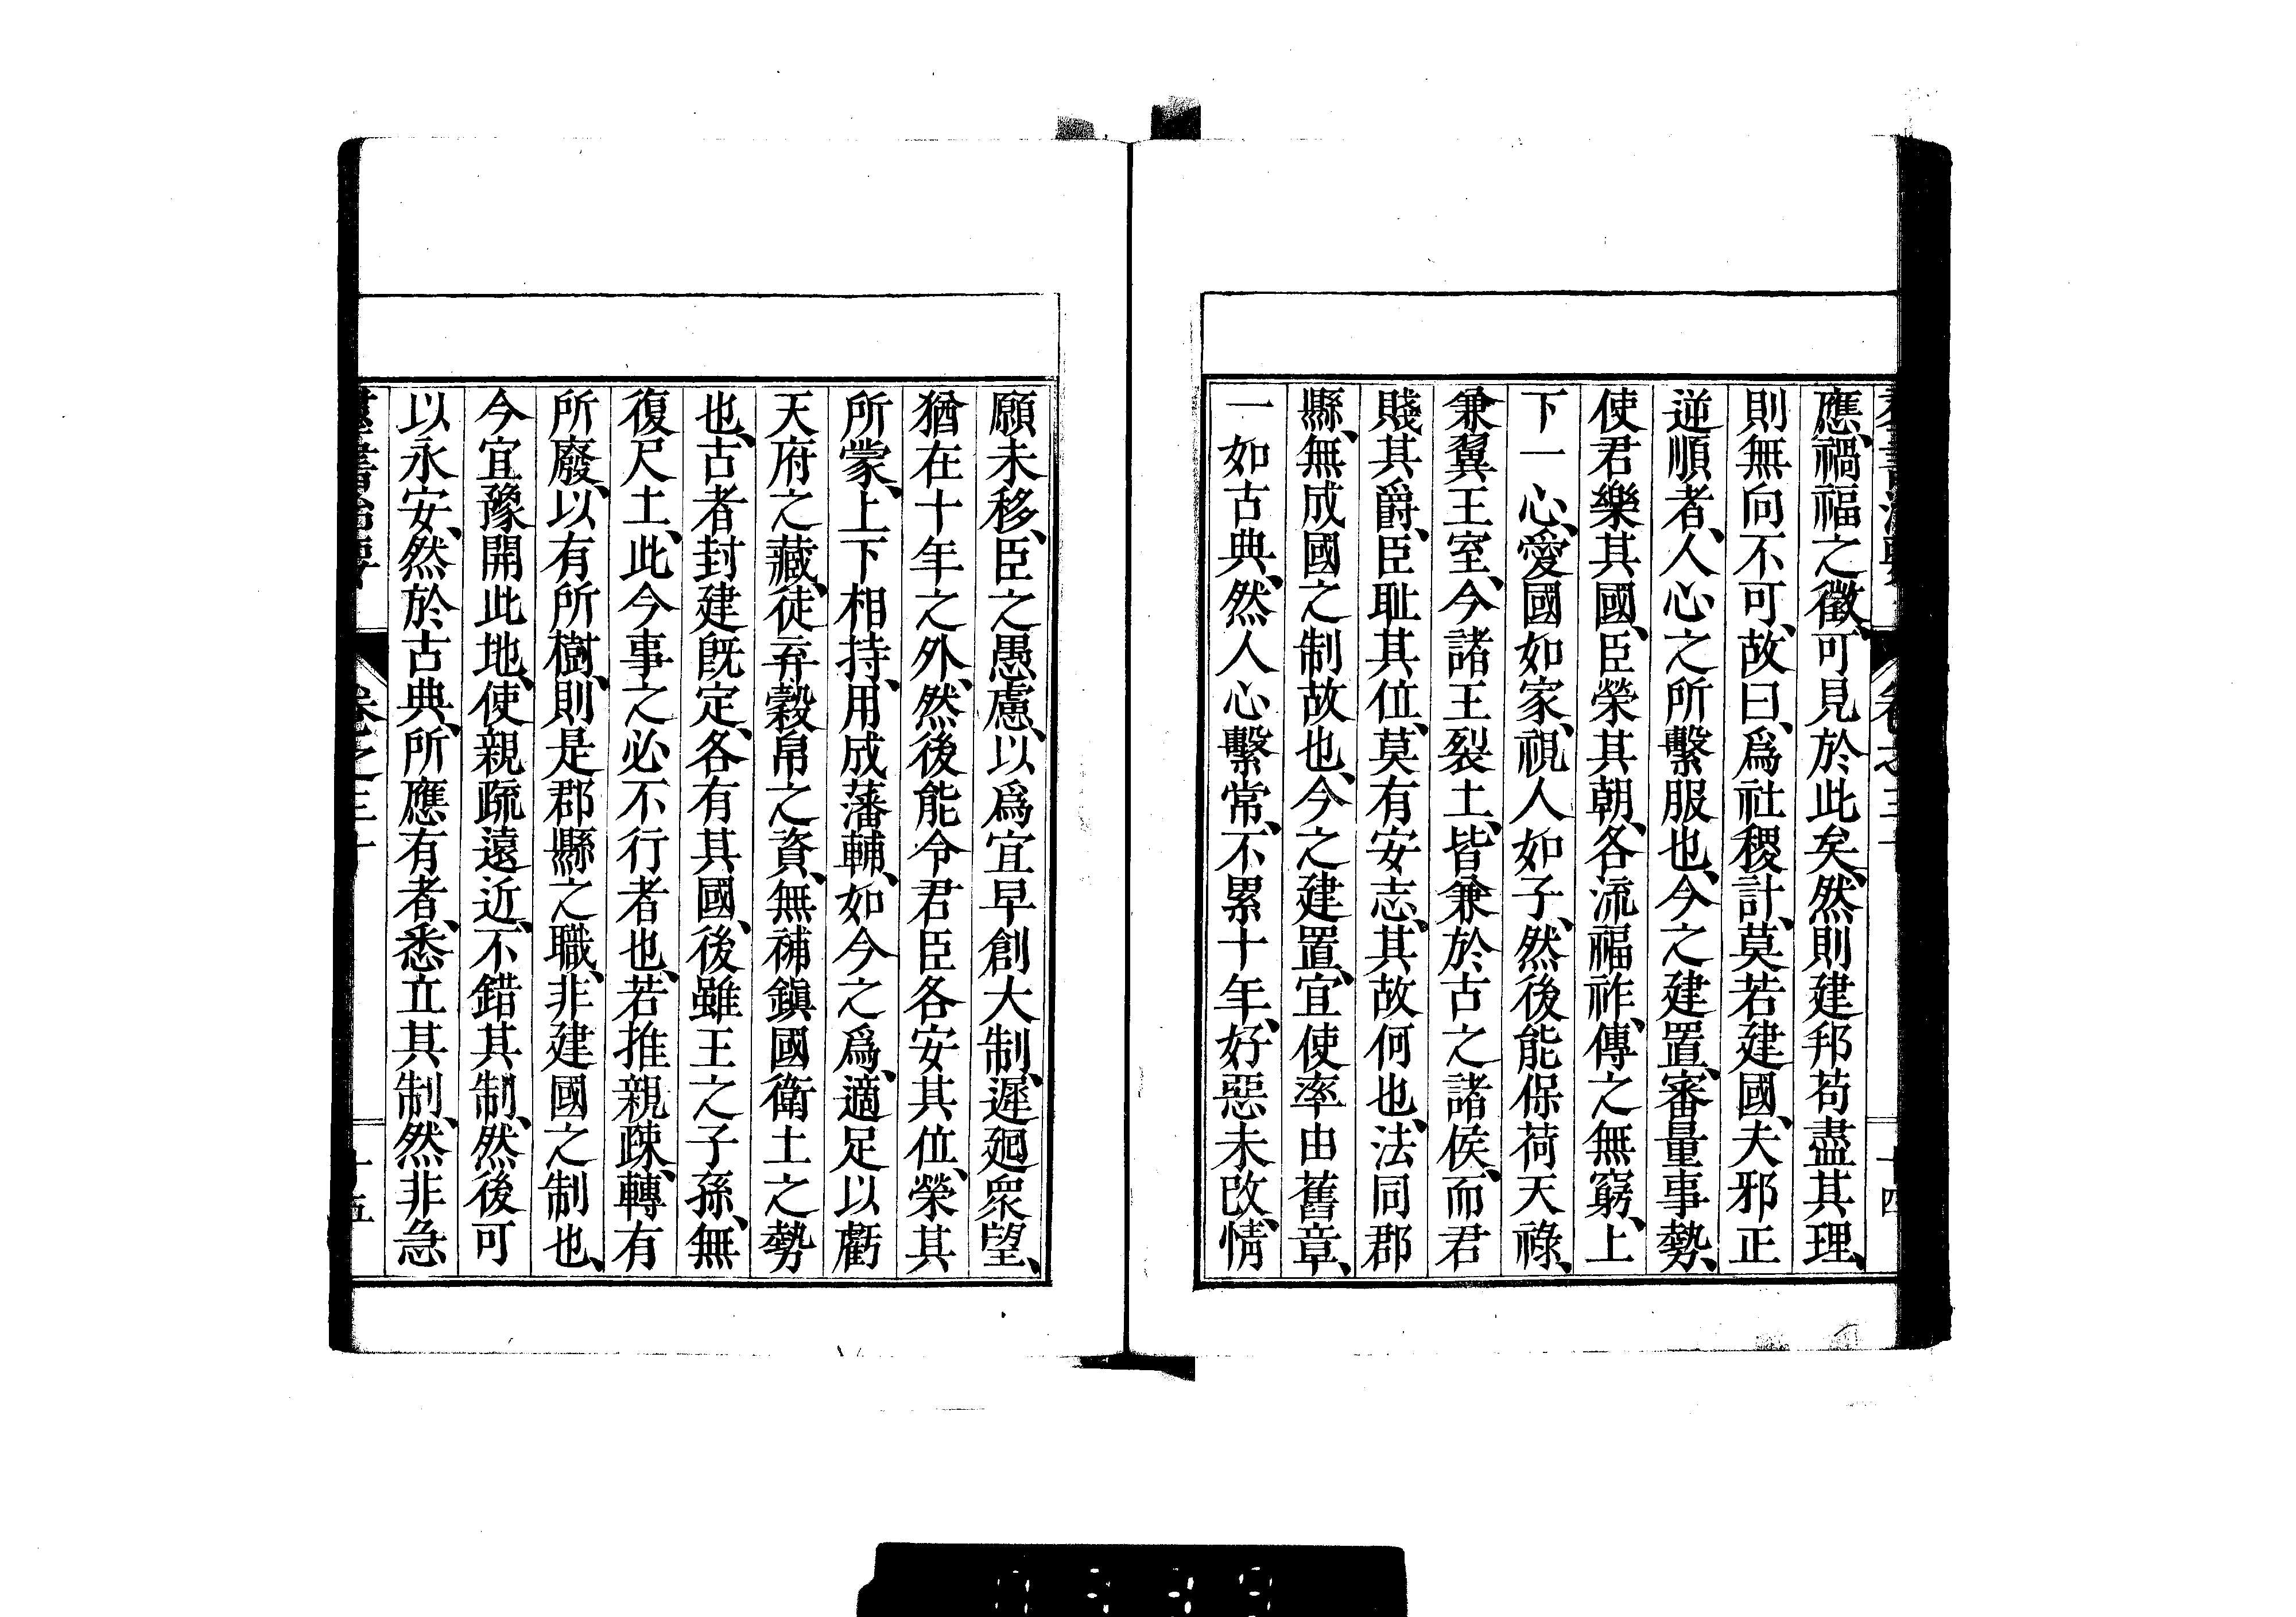 應、禍福之徵、可見於此矣、然則建邦苟盡其理、
則無向不可、故曰、爲社稷計、莫若建國、夫邪正
逆順者、人心之所繫服也、今之建置、審量事勢、
使君樂其國、臣榮其朝、各流福祚、傳之無窮、上
下一心、愛國如家、視人如子、然後能保荷天祿、
兼翼王室、今諸王裂土、皆兼於古之諸侯、而君
賤其爵、臣耻其位、莫有安志、其故何也、法同郡
縣、無成國之制故也、今之建置、宜使率由舊章、
一如古典、然人心繫常、不累十年、好惡未改、情
願未移、臣之愚慮、以爲宜早創大制、遲廻衆望、
猶在十年之外、然後能令君臣各安其位、榮其
所蒙、上下相持、用成藩輔、如今之爲、適足以虧
天府之藏、徒弃穀帛之資、無補鎭國衛土之勢
也、古者封建既定、各有其國、後雖王之子孫、無
復尺土、此今事之必不行者也、若推親疎、轉有
所廢、以有所樹、則是郡縣之職、非建國之制也、
今宜豫開此地、使親疏遠近、不錯其制、然後可
以永安、然於古典、所應有者、悉立其制、然非急
羣書治要 卷之三十 十五